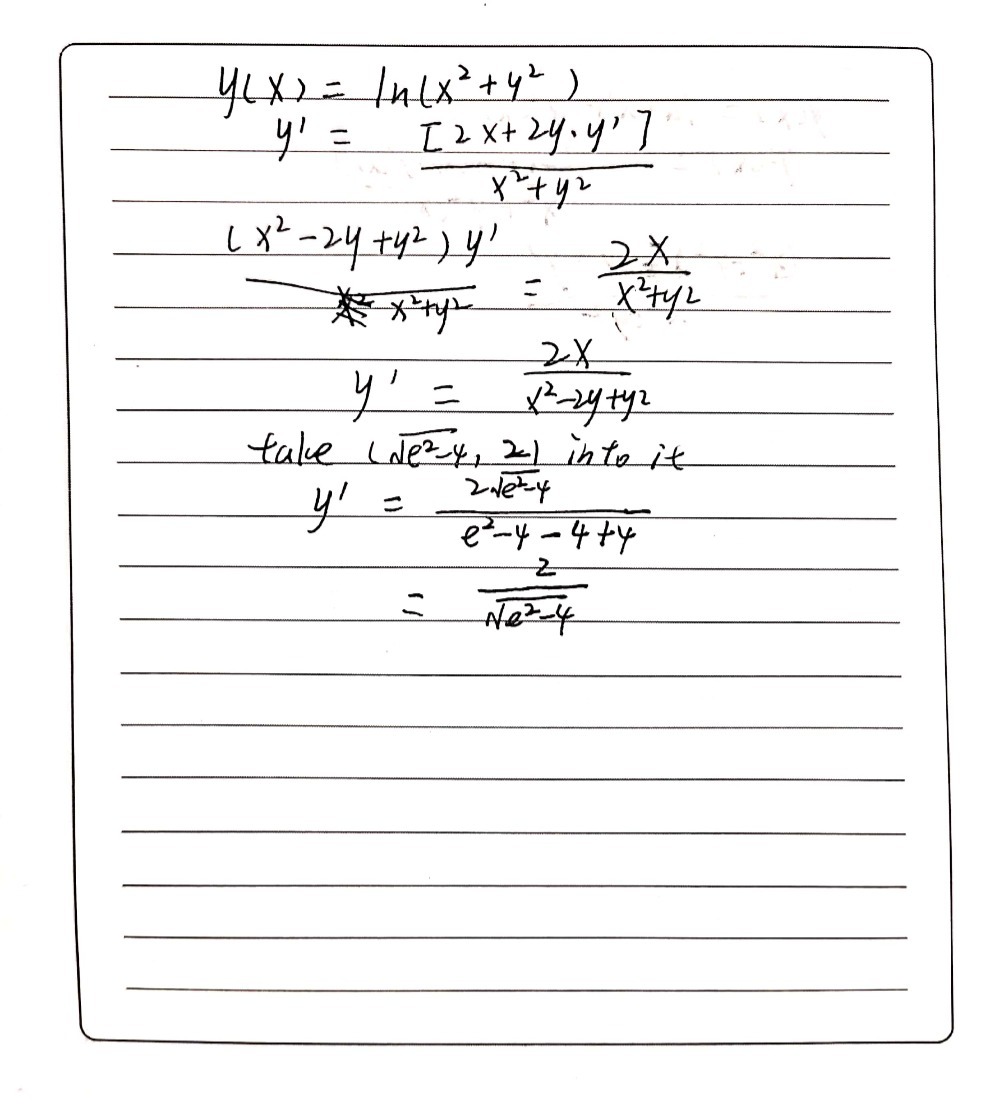 y(x) = ln(x²+y²)
y' = [2x+2y·y'] / x²+y²
(x²-2y+y²)y' / x²+y² = 2x / x²+y²
y' = 2x / x²-2y+y²
take (√e²-4, 2) into it
y' = 2√e²-4 / e²-4-4+4
= 2 / √e²-4